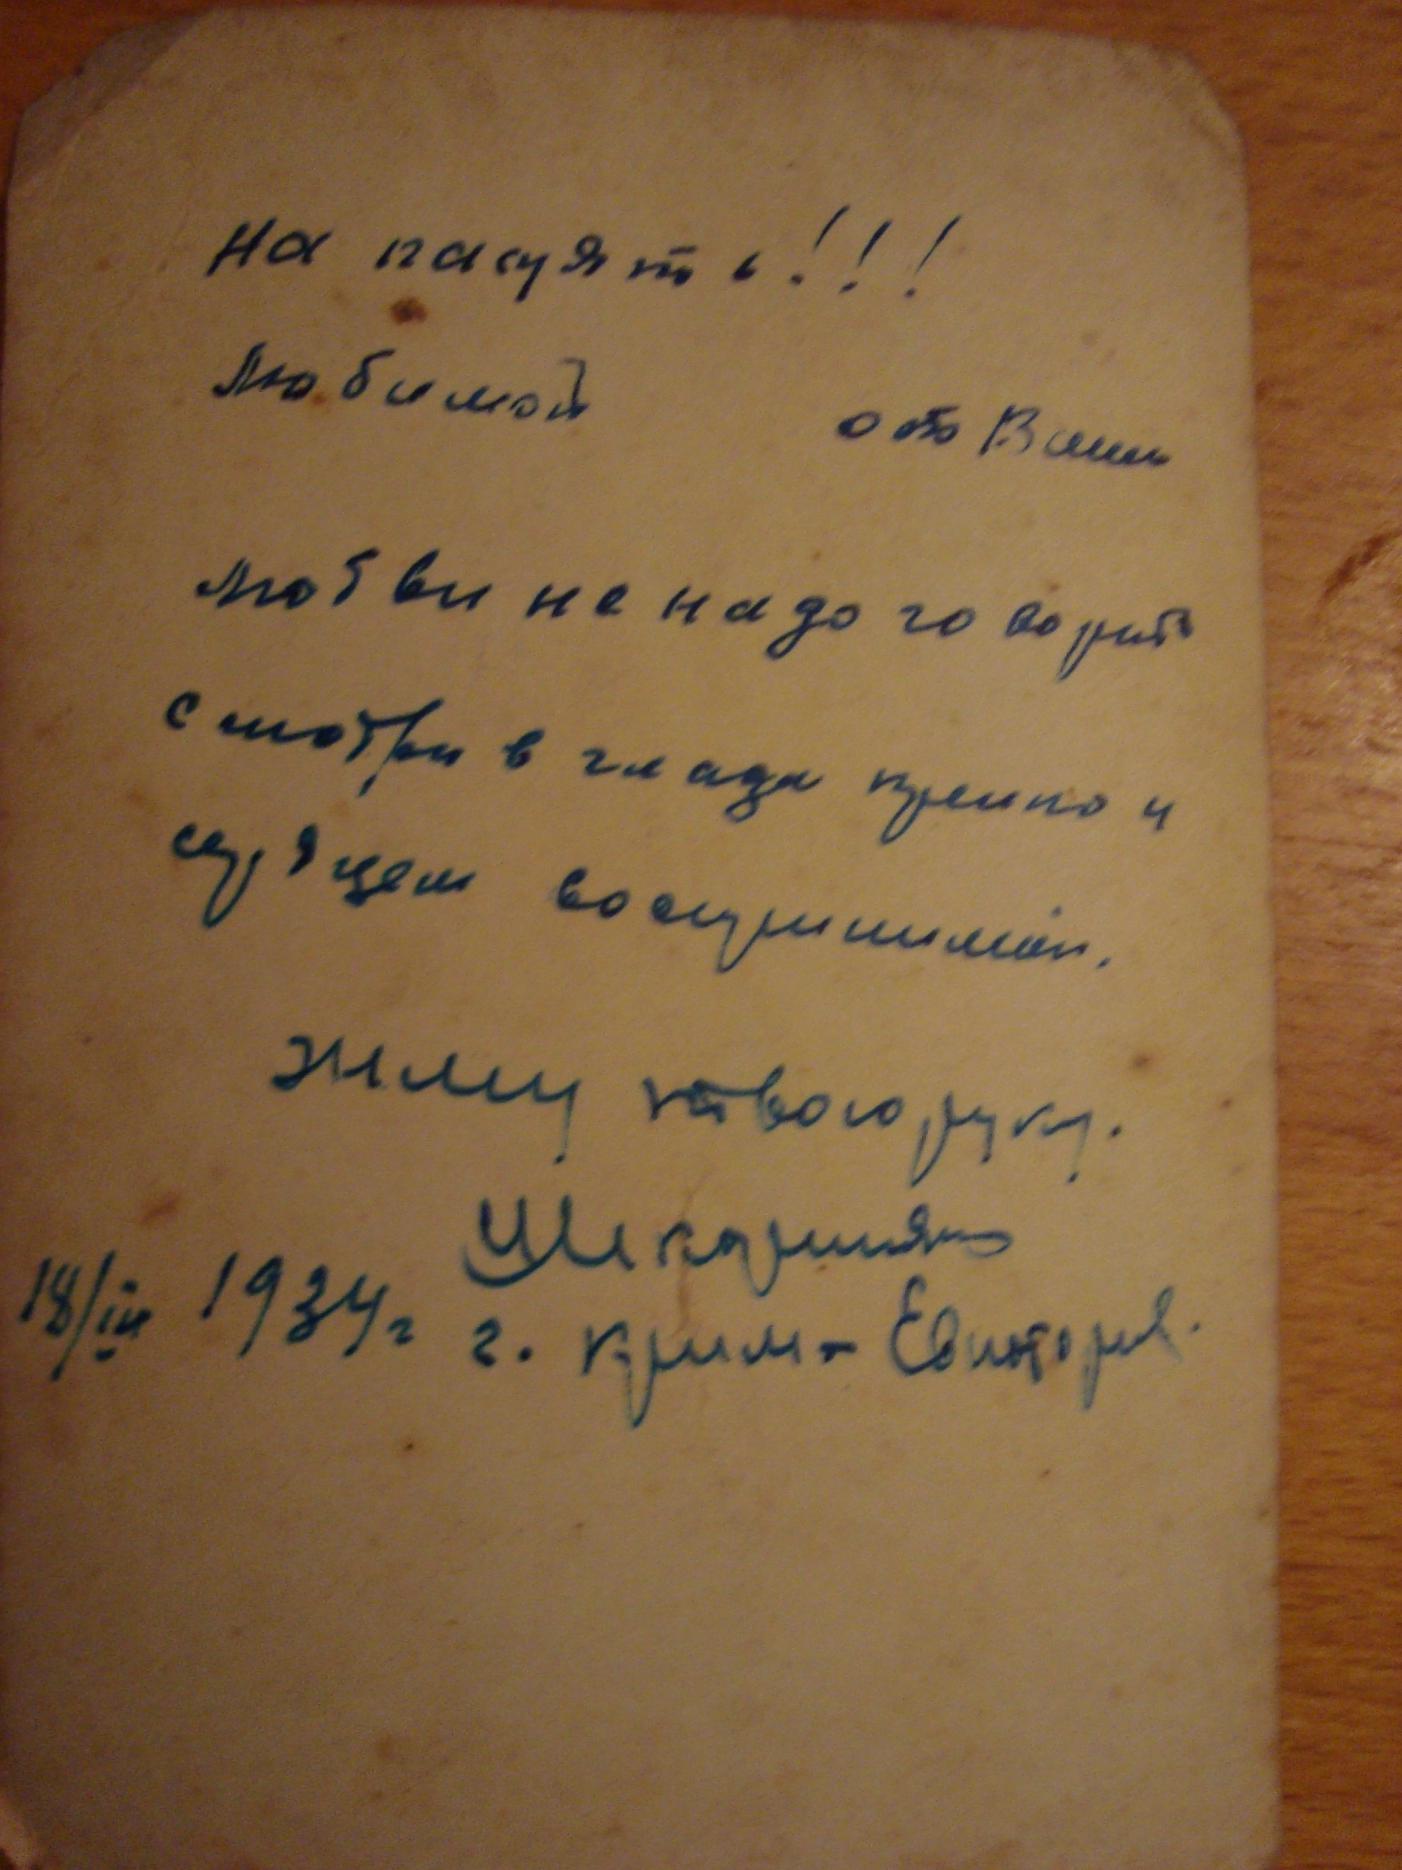 на память!!!
Любимой от Вани
Любви не надо говорить
смотри в глаза крепко и
сердцем воспринимай.
Жму твою руку.
18/III 1934 г г. Крим - Евпатория.